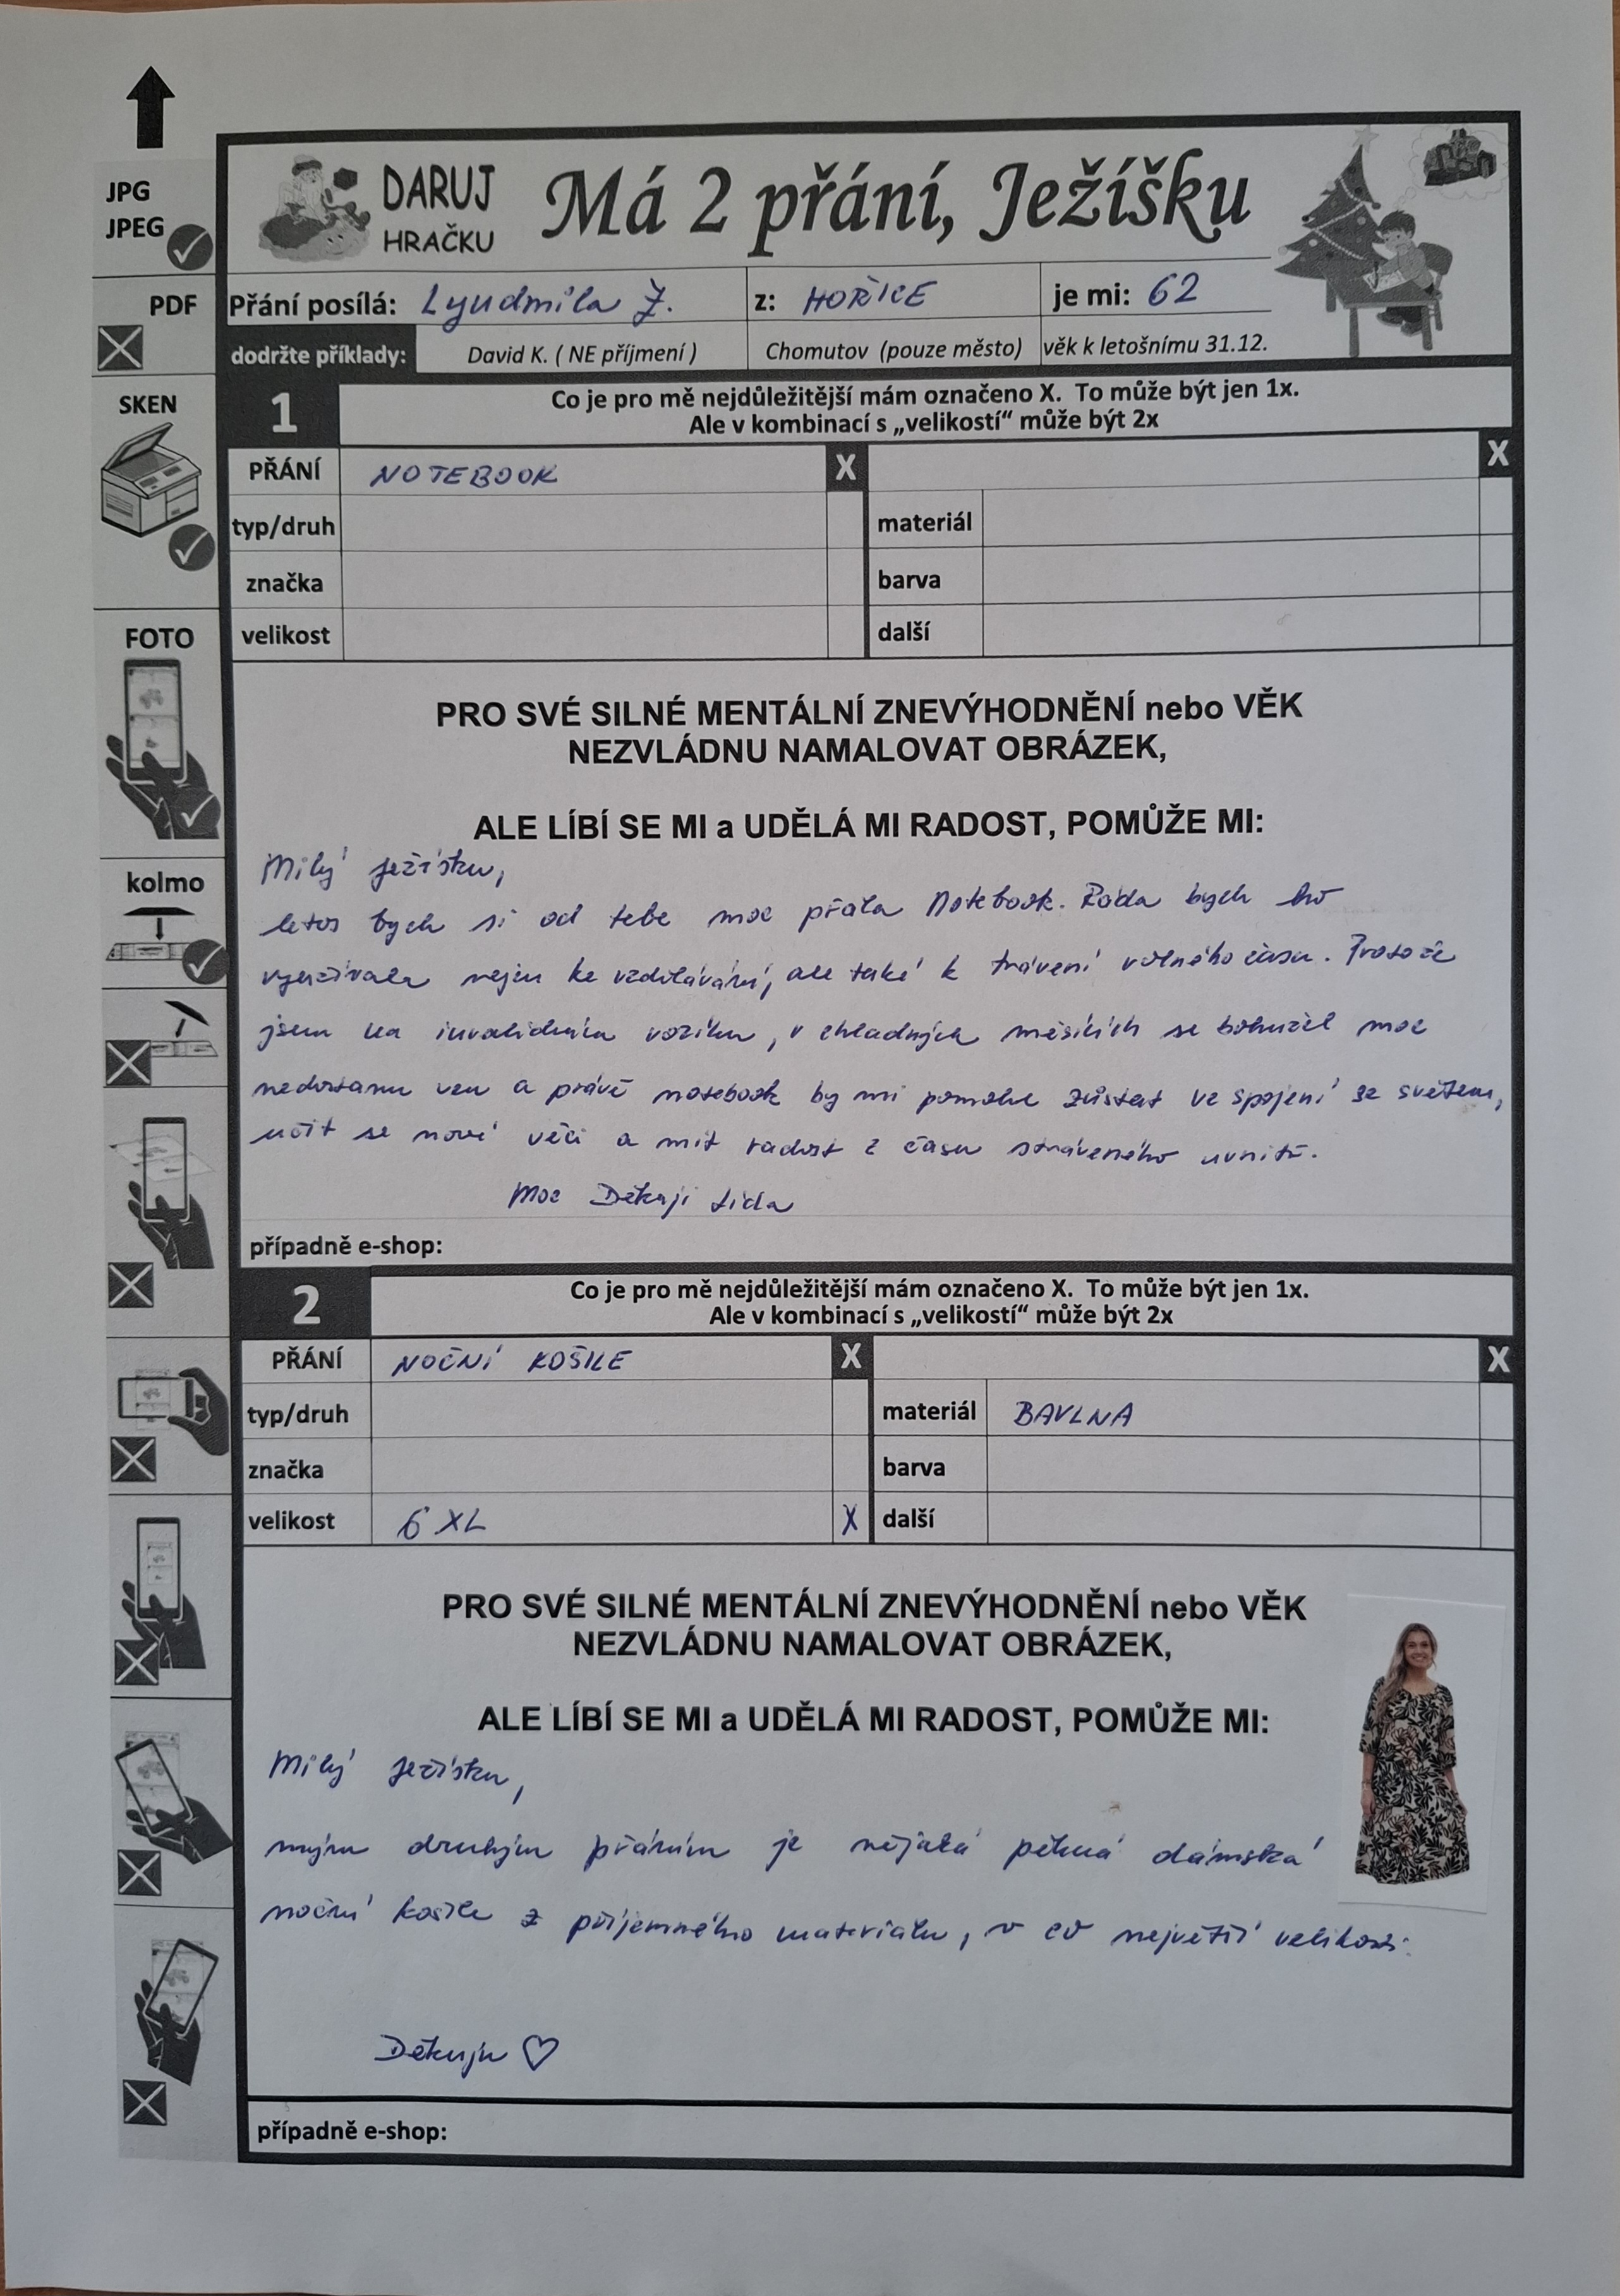 JPG
JPEG
PDF
SKEN
FOTO
kolmo
DARUJ
HRAČKU
Má 2 přání, Ježíšku
Přání posílá: Lyudmila Z. z: HOŘICE je mi: 62
dodržte příklady: David K. ( NE příjmení ) Chomutov (pouze město) věk k letošnímu 31.12.
1 Co je pro mě nejdůležitější mám označeno X. To může být jen 1x.
Ale v kombinací s „velikostí“ může být 2x
PŘÁNÍ NOTEBOOK X X
typ/druh materiál
značka barva
velikost další
PRO SVÉ SILNÉ MENTÁLNÍ ZNEVÝHODNĚNÍ nebo VĚK
NEZVLÁDNU NAMALOVAT OBRÁZEK,
ALE LÍBÍ SE MI a UDĚLÁ MI RADOST, POMŮŽE MI:
Milý Ježísku,
letos bych si od tebe moc přála Notebook. Ráda bych ho
využívala nejen ke vzdělávání, ale také k trávení volného času. Protože
jsem na invalidním vozíku, v chladných měsících se bohužel moc
nedostanu ven a právě notebook by mi pomohl zůstat ve spojení se světem,
učit se nové věci a mít radost z času stráveného uvnitř.
Moc Děkuji Lída
případně e-shop:
2 Co je pro mě nejdůležitější mám označeno X. To může být jen 1x.
Ale v kombinací s „velikostí“ může být 2x
PŘÁNÍ NOČNÍ KOŠILE X X
typ/druh materiál BAVLNA
značka barva
velikost 6 XL X další
PRO SVÉ SILNÉ MENTÁLNÍ ZNEVÝHODNĚNÍ nebo VĚK
NEZVLÁDNU NAMALOVAT OBRÁZEK,
ALE LÍBÍ SE MI a UDĚLÁ MI RADOST, POMŮŽE MI:
Milý Ježísku,
mým druhým přáním je nějaká pěkná dámská
noční košile z příjemného materiálu, v co největší velikosti.
Děkuju ♡
případně e-shop: